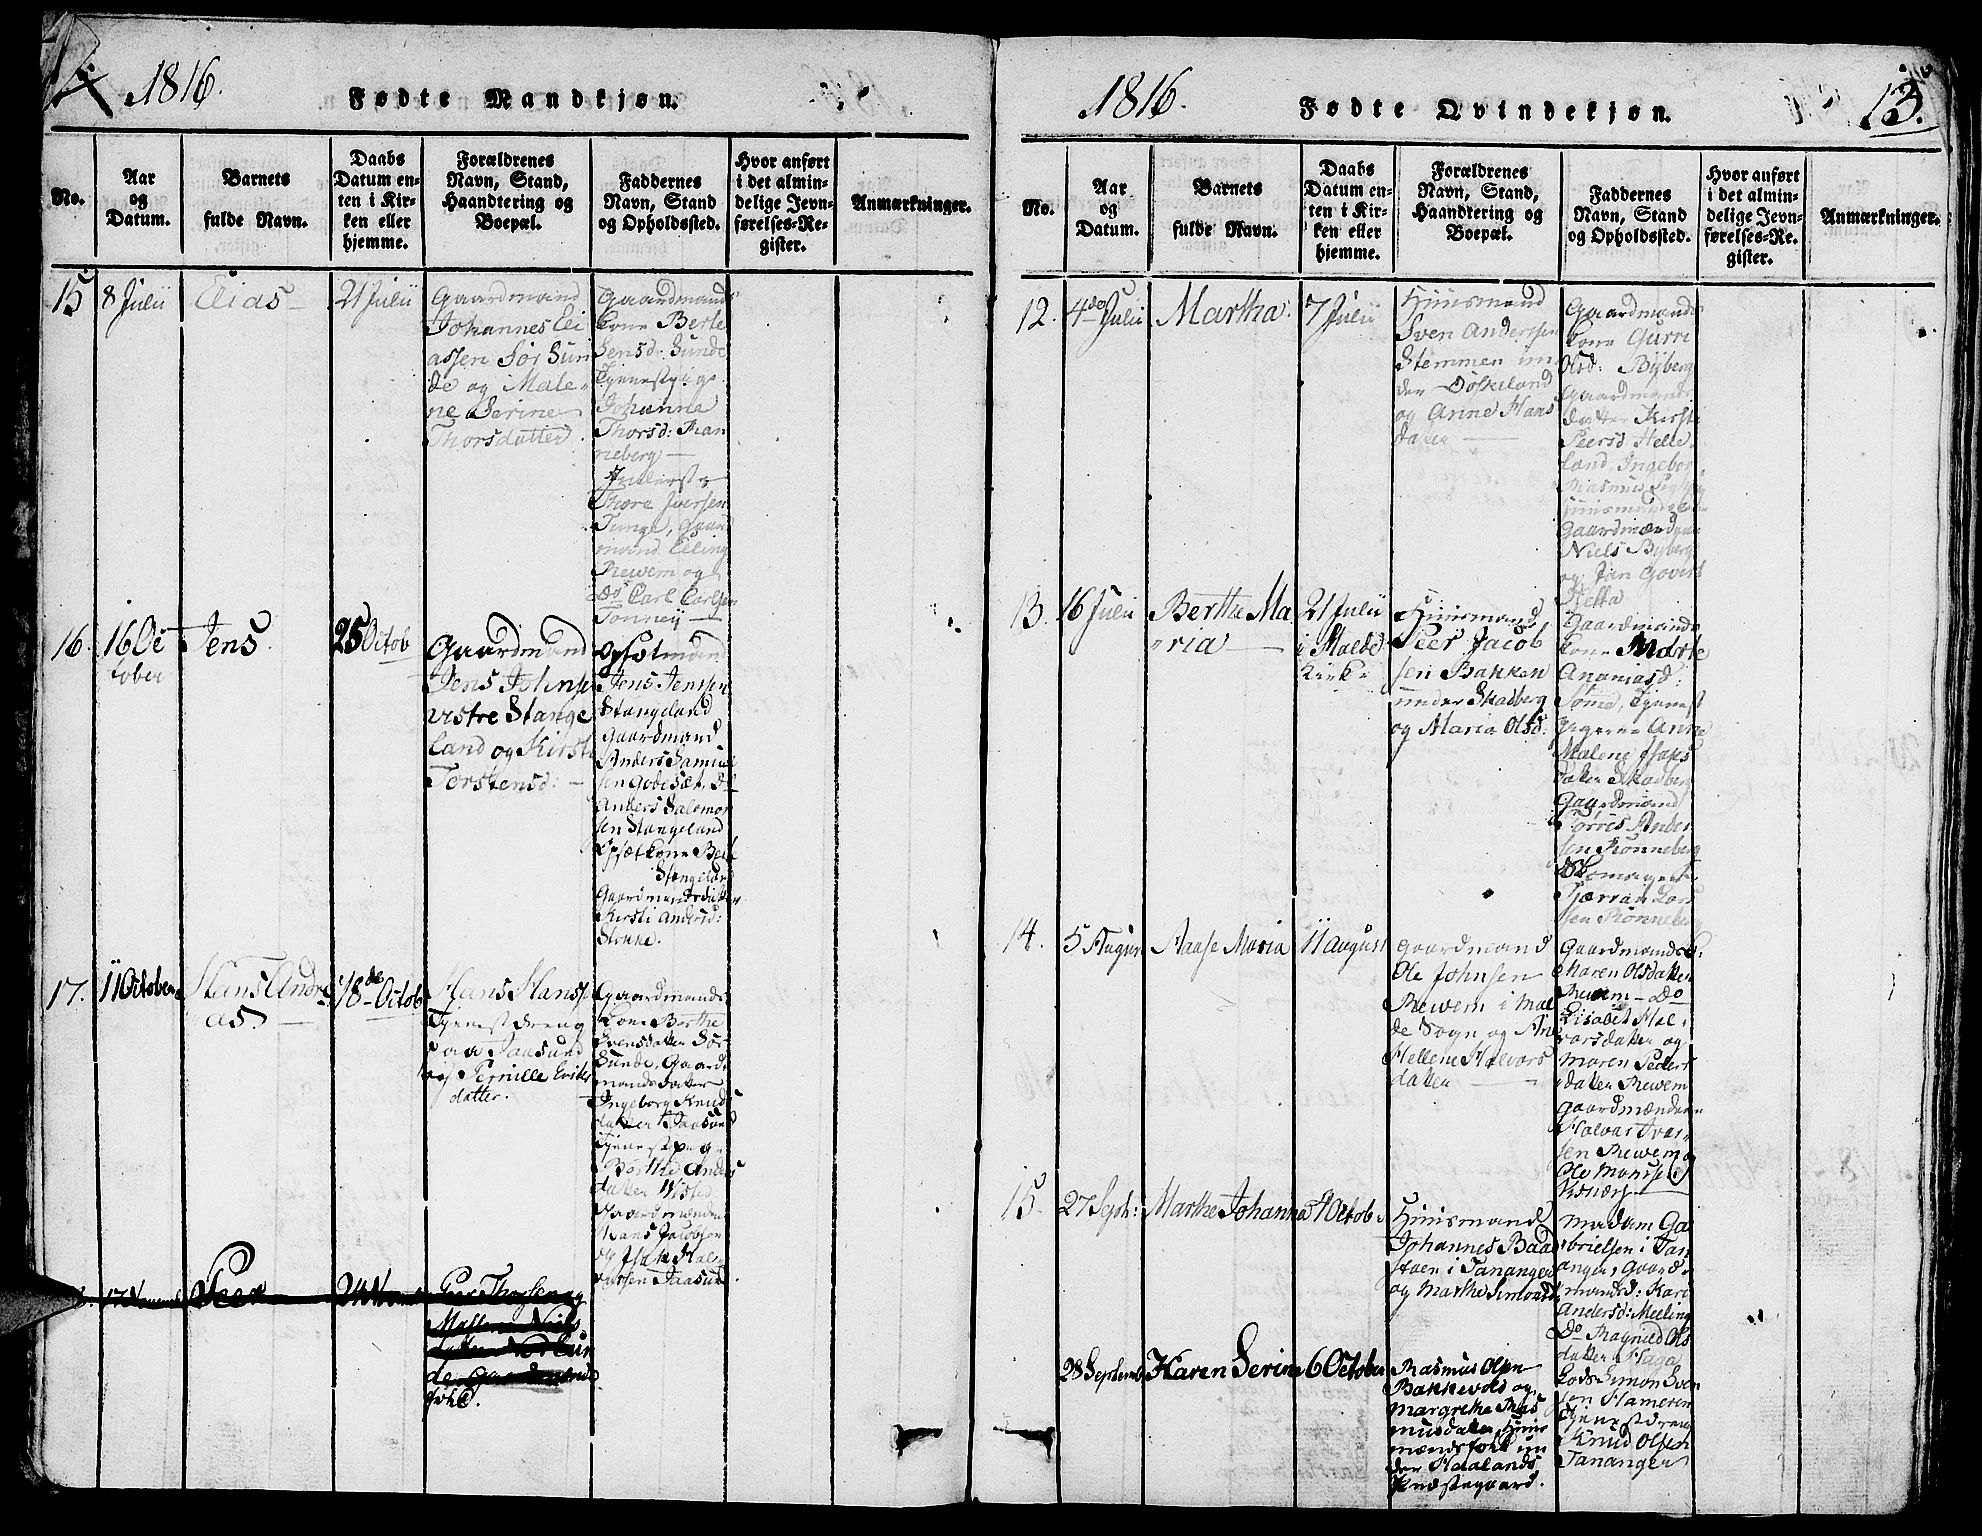 1816.
Fødte Mandkjøn.
No.
Aar
og
Datum.
Barnets
fulde Navn.
Daabs
Datum en-
ten i Kir-
ken eller
hjemme.
Forældrenes
Navn, Stand,
Haandtering og
Boepæl.
Faddernes
Navn, Stand
og Opholdssted.
Hvor anført
i det almin-
delige Jevn-
førelses-Re-
gister.
Anmærkninger.
15
8 Julii
Elias
21 Julii
Gaardmand
Johannes Eli
assen Sør Sun
de og Male-
ne Serine
Thorsdatter.
Gaardmands
kone Berte
Jensd: Sunde
Tjenestpige
Johanne
Thorsd: Ran
neberg
Thore Iversen
Tunge, Gaard
mand Elling
Rewem og
Do Carl Carlsen
Tonnej
16.
16 Oc
tober
Jens.
25 Octob
Gaardmand
Jens Johnsen
vestre Stange
land og Kirsti
Torstensd:
Opsætmand
Jens Jenssen
Stangeland
Gaardmand
Anders Samuel
sen Godeset, Do
Anders Salomon
sen Stangeland
Opsætkone Berte
Stangeland
Gaardmandsdatter
Kirsti Andersd:
17.
11 October
Hans Andre
as.
18de Octob
Hans Hanss
Tjenestdreng
paa Jaasund
og Pernille Eriks
datter.
Gaardmands
kone Berthe
Svensdatter Sør
Sunde, Gaard
mandsdatter
Ingeborg Knuds
datter Jaasund
Tjenestpige
Berthe Anders
datter Wisted
Gaardmænden
Hans Jacobsen
og Isak Hal
vorsen Jaasund.
17 Novemb
Peer
24 Novemb
Peer Thorsen og
Mallene Niels
datter Nor Sun
de Gaardmands
folk.
1816.
Fødte Qvindekjøn.
13.
No.
Aar
og
Datum.
Barnets
fulde Navn.
Daabs
Datum en-
ten i Kir-
ken eller
hjemme.
Forældrenes
Navn, Stand,
Haandtering og
Boepæl.
Faddernes
Navn, Stand
og Opholdssted.
Hvor anført
i det almin-
delige Jevn-
førelses-Re-
gister.
Anmærkninger.
12.
4de Julii
Martha.
7 Julii
Huusmand
Sven Anderssen
Stemmen un
der
og Anne Hans
datter
Gaardmands
kone Gurri
Olsd: Byberg
Gaardmands
datter Kirsti
Peersd: Helle
land, Ingebor
Rasmus
Huusmands
Gaardmændene
Niels Byberg
og Jan Govert
13.
16 Julii
Berthe Ma
ria
21 Julii
i Malde
Kirke
Huusmand
Peer Jacob
sen Bakken
under Skadberg
og Maria Olsd.
Gaardmands
kone Marte
Ananiasd:
Sømme, Tjenest
pigerne Anne
Malene Isaks
datter Skadberg
Gaardmand
Torres Ander
sen Rønneberg
Skomager
14.
5 August
Aase Maria
11 August
Gaardmand
Ole Johnsen
Rewem i Mal
de Sogn og An
Hellene Halvors
datter
Gaardmandsk.
Maren Olsdatter
Rewem Do
Lisabet Hal
vorsdatter og
Maren Peders
datter Rewem
Gaardmændene
Halvor Ivar
sen Rewem og
Ole Monsen
15.
27 Septr:
Marthe Johanna
Octob
Huusmand
Johannes Baa
støen i Tananger
og Marthe Simonsd.
Madam Ga
brielsen i Tan
anger, Gaard
mandsd: Kari
Andersd: Meeling
Do Ragnild Ols
datter Haga
Lods Simon Sven
sen Hameren
Tjenestdreng
Knud Olsen
Tananger
28 Septemb
Karen Serine
6 October
Rasmus Olsen
Bakkevold og
Margrethe Ras
musdatter, Huus
mandsfolk un
der Haalands
Præstegaard.